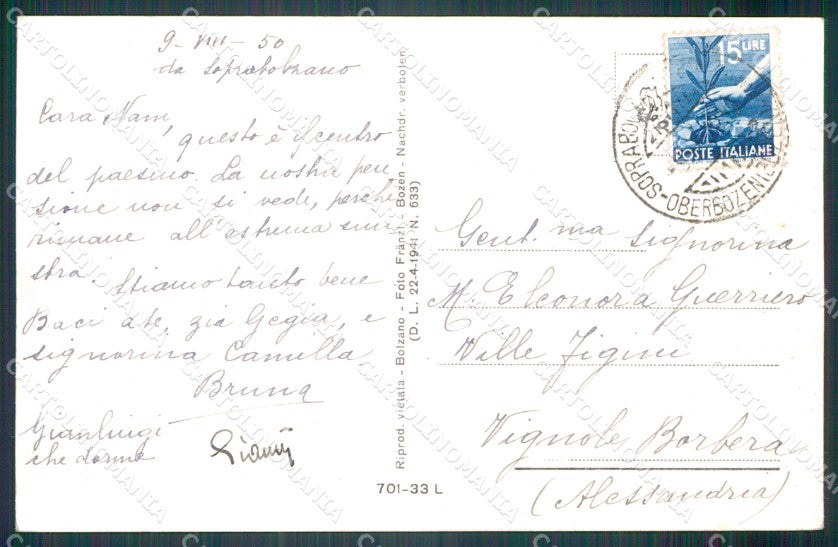 9-VIII-50
da Soprabolzano
Cara Nam,
questo è il centro
del paesino. La nostra pen,
sione non si vede, perchè
rimane all'estrema sini
stra. Stiamo tanto bene
Baci a te, zia Gegia, e
signorina Camilla
Bruna
Gianluigi
che dorme
Gianni
Riprod. vietata - Bolzano - Foto Fränzl - Bozen - Nachdr. verboten
(D. L. 22-4-1941 N. 633)
701-33 L
15 LIRE
POSTE ITALIANE
SOPRABOLZANO-OBERBOZEN
Gent.ma signorina
M. Eleonora Guerriero
Ville Figini
Vignole Borbera
(Alessandria)
CARTOLINOMANIA